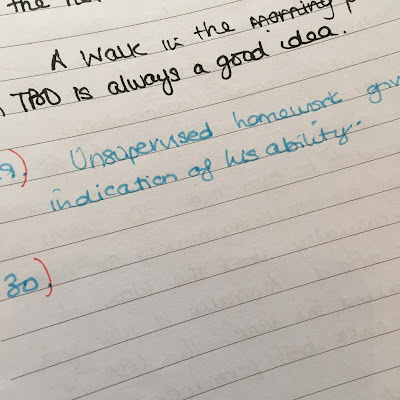 the
A walk in the morning
TBD is always a good idea.
9) Unsupervised homework giv
indication of his ability.
30)